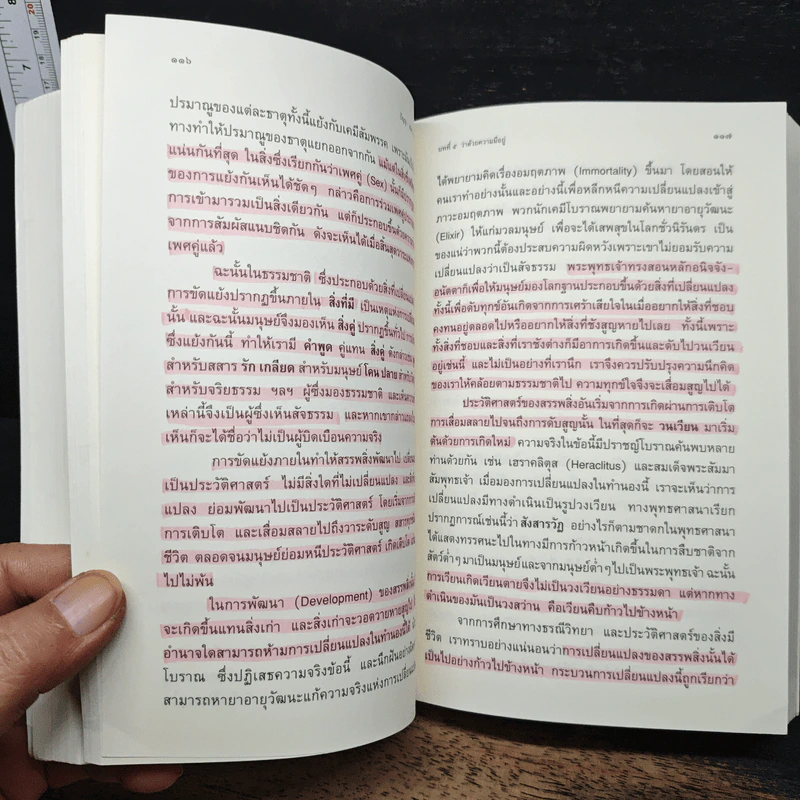 ๑๑๖
ปรมาณูของแต่ละธาตุทั้งนี้แย้งกับเคมีสัมพรรค
ทางทำให้ปรมาณูของธาตุแยกออกจากกัน
แน่นกันที่สุด ในสิ่งซึ่งเรียกกันว่าเพศคู่ (Sex)
ของการแย้งกันเห็นได้ชัดๆ กล่าวคือการร่วมเพศคู่
การเข้ามารวมเป็นสิ่งเดียวกัน แต่ก็ประกอบขึ้นด้วย
จากการสัมผัสแนบชิดกัน ดังจะเห็นได้เมื่อสิ้นสุด
เพศคู่แล้ว
ฉะนั้นในธรรมชาติ ซึ่งประกอบด้วยสิ่งที่เปลี่ยนแปลง
การขัดแย้งปรากฏขึ้นภายใน สิ่งที่มี เป็นเหตุแห่งการ
นั้น และฉะนั้นมนุษย์จึงมองเห็น สิ่งคู่ ปรากฏขึ้นทั่วไป
ซึ่งแย้งกันนี้ ทำให้เรามี คำพูด คู่แทน สิ่งคู่ ดังกล่าว
สำหรับสสาร รัก เกลียด สำหรับมนุษย์ โคน ปลาย
สำหรับจริยธรรม ฯลฯ ผู้ซึ่งมองธรรมชาติ และเห็น
เหล่านี้จึงเป็นผู้ซึ่งเห็นสัจธรรม และหากเขากล่าว
เห็นก็จะได้ชื่อว่าไม่เป็นผู้บิดเบือนความจริง
การขัดแย้งภายในทำให้สรรพสิ่งพัฒนาไป
เป็นประวัติศาสตร์ ไม่มีสิ่งใดที่ไม่เปลี่ยนแปลง
แปลง ย่อมพัฒนาไปเป็นประวัติศาสตร์ โดยเริ่มจาก
การเติบโต และเสื่อมสลายไปถึงวาระดับสูญ
ชีวิต ตลอดจนมนุษย์ย่อมหนีประวัติศาสตร์ เกิดเติบโต
ไปไม่พ้น
ในการพัฒนา (Development) ของสรรพสิ่งนั้น
จะเกิดขึ้นแทนสิ่งเก่า และสิ่งเก่าจะวอดวายหายสูญไป
อำนาจใดสามารถห้ามการเปลี่ยนแปลงในทำนองนี้ได้
โบราณ ซึ่งปฏิเสธความจริงข้อนี้ และนึกฝันอย่าง
สามารถหายาอายุวัฒนะแก้ความจริงแห่งการเปลี่ยนแปลง
บทที่ ๕ ว่าด้วยความมีอยู่
๑๑๗
ได้พยายามคิดเรื่องอมฤตภาพ (Immortality) ขึ้นมา โดยสอนให้
คนเราทำอย่างนั้นและอย่างนี้เพื่อหลีกหนีความเปลี่ยนแปลงเข้าสู่
ภาวะอมฤตภาพ พวกนักเคมีโบราณพยายามค้นหายาอายุวัฒนะ
(Elixir) ให้แก่มวลมนุษย์ เพื่อจะได้เสพสุขในโลกชั่วนิรันดร เป็น
ของแน่ว่าพวกนี้ต้องประสบความผิดหวังเพราะเขาไม่ยอมรับความ
เปลี่ยนแปลงว่าเป็นสัจธรรม พระพุทธเจ้าทรงสอนหลักอนิจจัง-
อนัตตาก็เพื่อให้มนุษย์มองโลกฐานประกอบขึ้นด้วยสิ่งที่เปลี่ยนแปลง
ทั้งนี้เพื่อดับทุกข์อันเกิดจากการเศร้าเสียใจในเมื่ออยากให้สิ่งที่ชอบ
คงทนอยู่ตลอดไปหรืออยากให้สิ่งที่ชังสูญหายไปเลย ทั้งนี้เพราะ
ทั้งสิ่งที่ชอบและสิ่งที่เราชังต่างก็มีอาการเกิดขึ้นและดับไปวนเวียน
อยู่เช่นนี้ และไม่เป็นอย่างที่เรานึก เราจึงควรปรับปรุงความนึกคิด
ของเราให้คล้อยตามธรรมชาติไป ความทุกข์ใจจึงจะเสื่อมสูญไปได้
ประวัติศาสตร์ของสรรพสิ่งอันเริ่มจากการเกิดผ่านการเติบโต
การเสื่อมสลายไปจนถึงการดับสูญนั้น ในที่สุดก็จะ วนเวียน มาเริ่ม
ต้นด้วยการเกิดใหม่ ความจริงในข้อนี้มีปราชญ์โบราณค้นพบหลาย
ท่านด้วยกัน เช่น เฮราคลิตุส (Heraclitus) และสมเด็จพระสัมมา
สัมพุทธเจ้า เมื่อมองการเปลี่ยนแปลงในทำนองนี้ เราจะเห็นว่าการ
เปลี่ยนแปลงมีทางดำเนินเป็นรูปวงเวียน ทางพุทธศาสนาเรียก
ปรากฏการณ์เช่นนี้ว่า สังสารวัฏ อย่างไรก็ตามชาดกในพุทธศาสนา
ได้แสดงทรรศนะไปในทางมีการก้าวหน้าเกิดขึ้นในการสืบชาติจาก
สัตว์ต่ำๆ มาเป็นมนุษย์และจากมนุษย์ต่ำๆ ไปเป็นพระพุทธเจ้า ฉะนั้น
การเวียนเกิดเวียนตายจึงไม่เป็นวงเวียนอย่างธรรมดา แต่หากทาง
ดำเนินของมันเป็นวงสว่าน คือเวียนคืบก้าวไปข้างหน้า
จากการศึกษาทางธรณีวิทยา และประวัติศาสตร์ของสิ่งมี
ชีวิต เราทราบอย่างแน่นอนว่าการเปลี่ยนแปลงของสรรพสิ่งนั้นได้
เป็นไปอย่างก้าวไปข้างหน้า กระบวนการเปลี่ยนแปลงนี้ถูกเรียกว่า